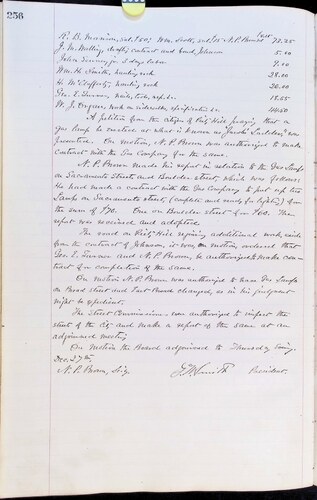 256
R. B. Munson, sal. $50; Wm. Scott, sal. $15; N. P. Brown 77.25
J. M. Walling, drafting contract and bond, Johnson 5.00
John Tierney, for 3 days labor 9.00
Wm. H. Smith, hauling rock 28.00
H. McCafferty, hauling rock 20.00
Geo. E. Turner, nails, tools, repairs 18.65
W. J. Organ, work on sidewalks, specifications &c. 24.50
A petition from the citizens of Piety Hill praying that a
gas lamp be erected at what is known as was
presented. On motion, N. P. Brown was authorized to make
contract with the Gas Company for the same.
N. P. Brown made his report in relation to the Gas Lamps
on Sacramento Street, and Boulder street, which was as follows:
He had made a contract with the Gas Company to put up two
Lamps on Sacramento street, (complete and ready for lighting) for
the sum of $70. One on Boulder street for $60. The
report was received and adopted.
The road on Piety Hill requiring additional work, aside
from the contract of Johnson, it was on motion, ordered that
Geo. E. Turner and N. P. Brown, be authorized to make con-
tract for completion of the same.
On motion N. P. Brown was authorized to have Gas Lamps
on Broad street and East Broad changed, as in his judgment
might be expedient.
The Street Commissioner was authorized to inspect the
street of the City and make a report of the same at an
adjourned meeting.
On motion the Board adjourned to Thursday evening,
Dec. 27th,
N. P. Brown, Secy. President.